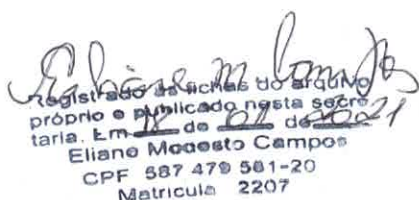 Registrado às fichas do arquivo
próprio e publicado nesta secre
taria. Em 18 de 01 de 2021
Eliane Modesto Campos
CPF 587 479 581-20
Matrícula 2207